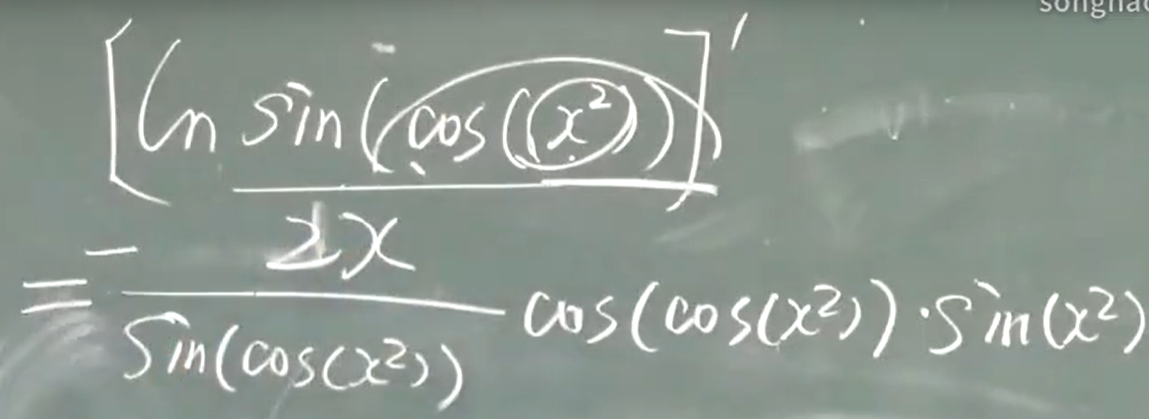 songhao
[ln sin(cos(x²))]′
= - 2x / sin(cos(x²)) cos(cos(x²))·sin(x²)